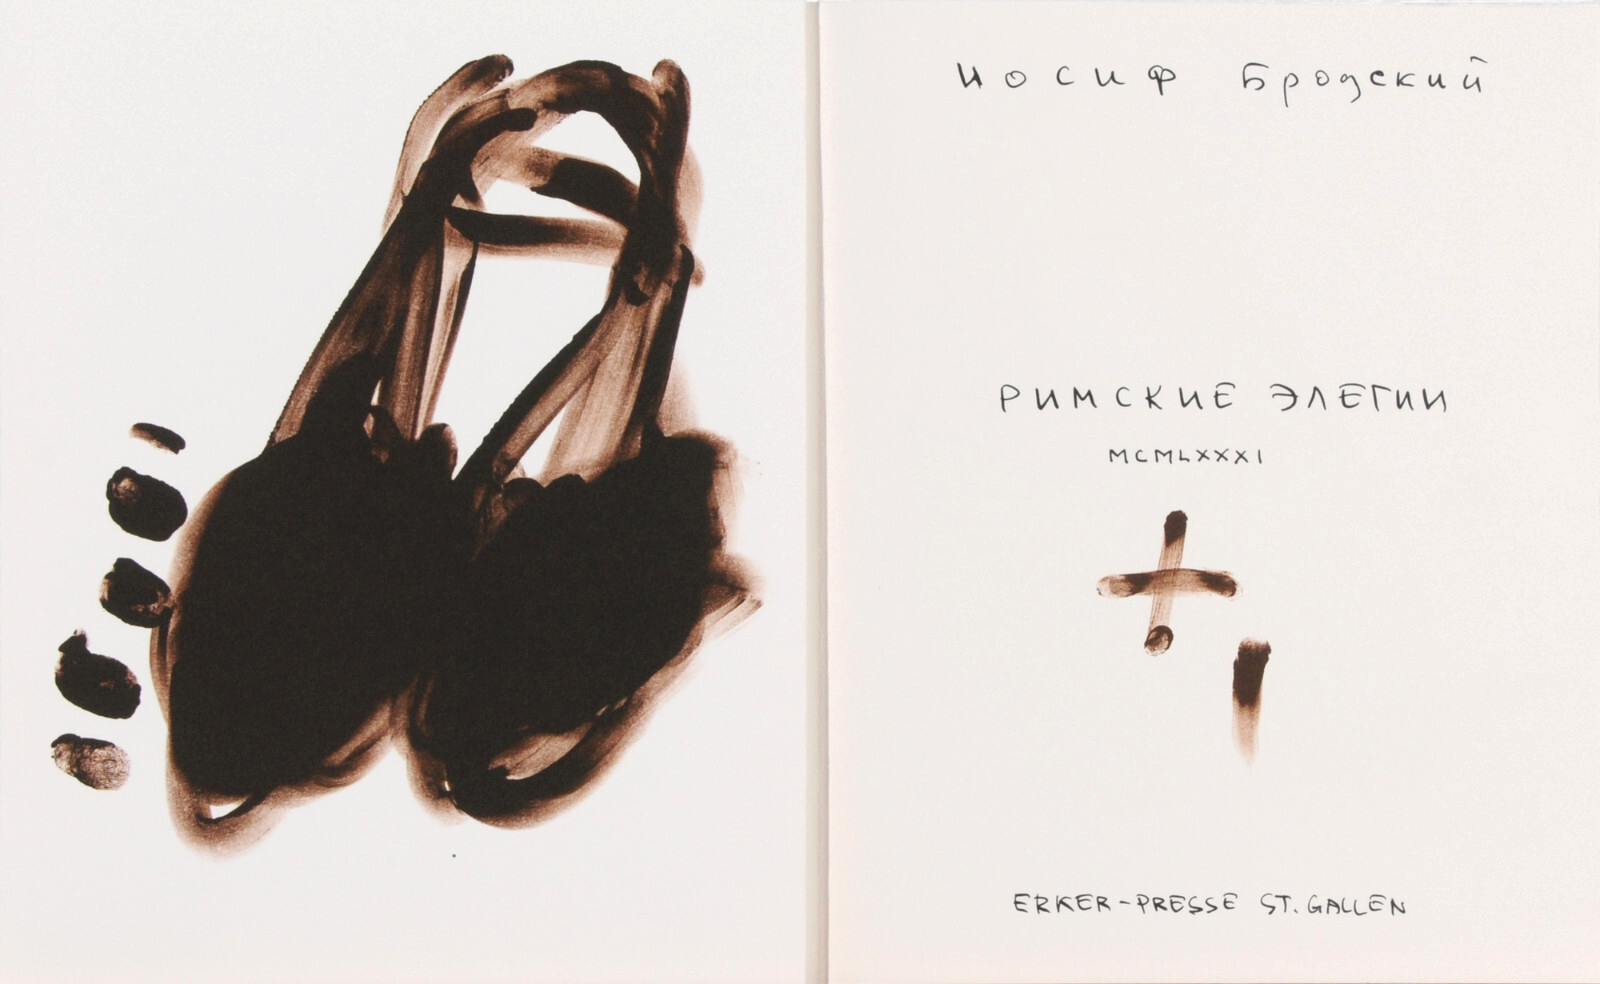 Иосиф Бродский
РИМСКИЕ ЭЛЕГИИ
MCMLXXXI
ERKER-PRESSE ST. GALLEN